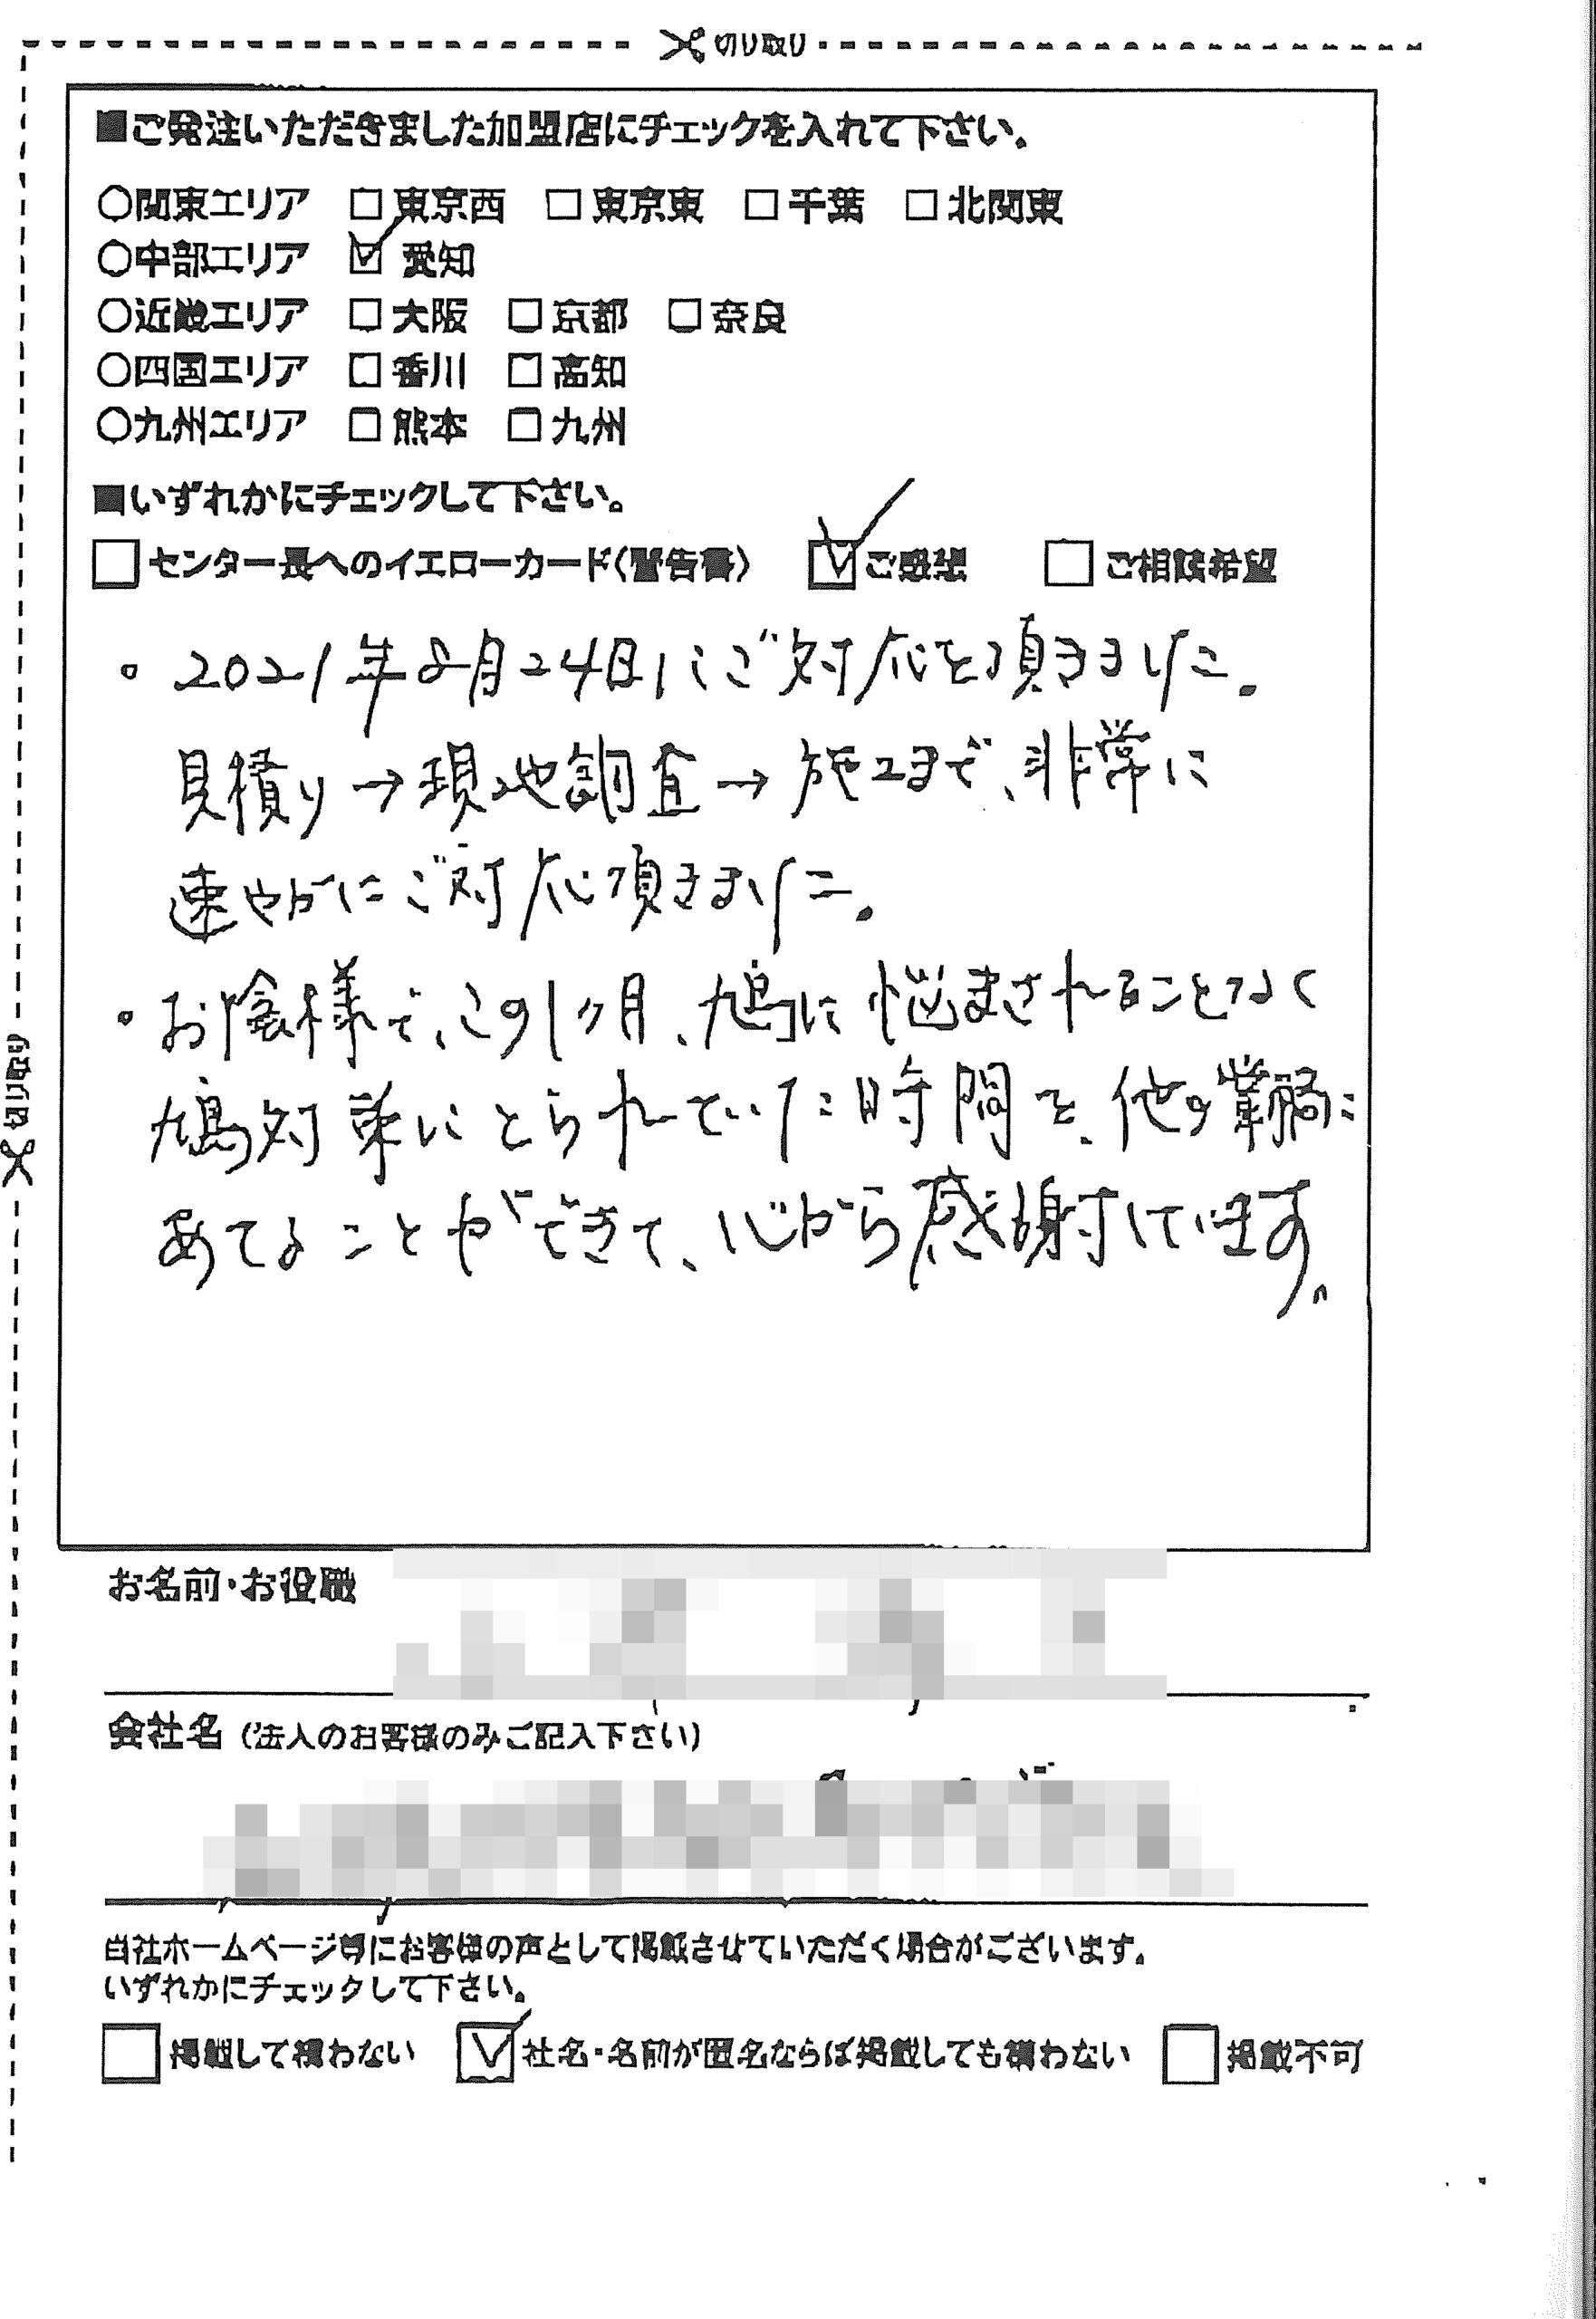 切り取り
■ご発注いただきました加盟店にチェックを入れて下さい。
○関東エリア □東京西 □東京東 □千葉 □北関東
○中部エリア ☑愛知
○近畿エリア □大阪 □京都 □奈良
○四国エリア □香川 □高知
○九州エリア □熊本 □九州
■いずれかにチェックして下さい。
□センター長へのイエローカード〈警告書〉 ☑ご感想 □ご相談希望
。2021年8月24日にご対応を頂きました。
見積り→現地調査→施工まで、非常に
速やかにご対応頂きました。
。お陰様で、この1ヶ月、鳩に悩まされることなく
鳩対策にとられていた時間を、他の業務に
あてることができて、心から感謝しています。
切り取り
お名前・お役職
会社名（法人のお客様のみご記入下さい）
当社ホームページ等にお客様の声として掲載させていただく場合がございます。
いずれかにチェックして下さい。
□掲載して構わない ☑社名・名前が匿名ならば掲載しても構わない □掲載不可